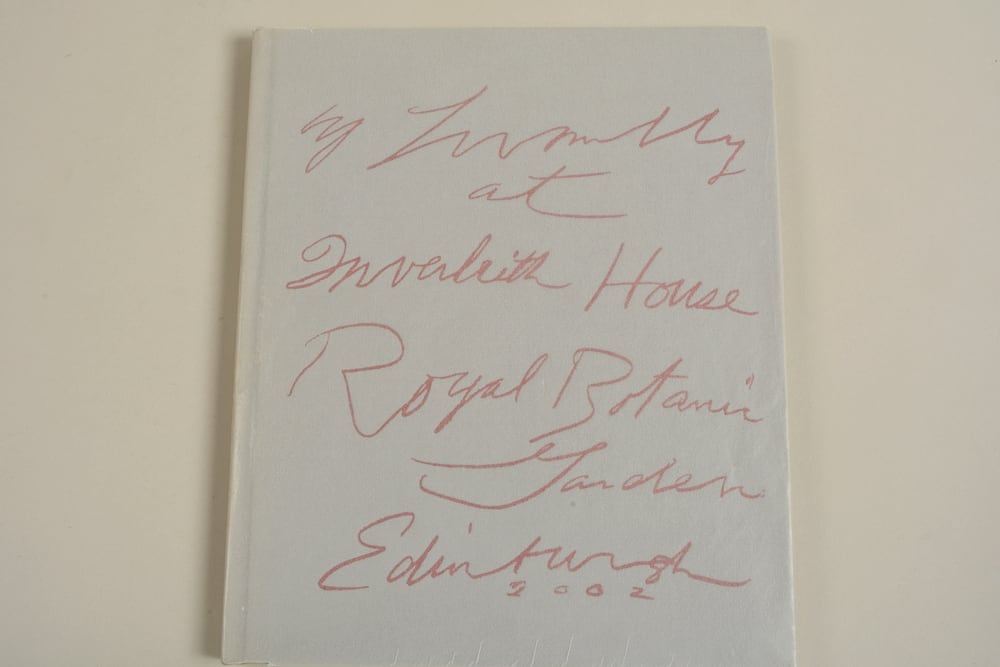 Cy Twombly
at
Inverleith House
Royal Botanic
Garden
Edinburgh
2002